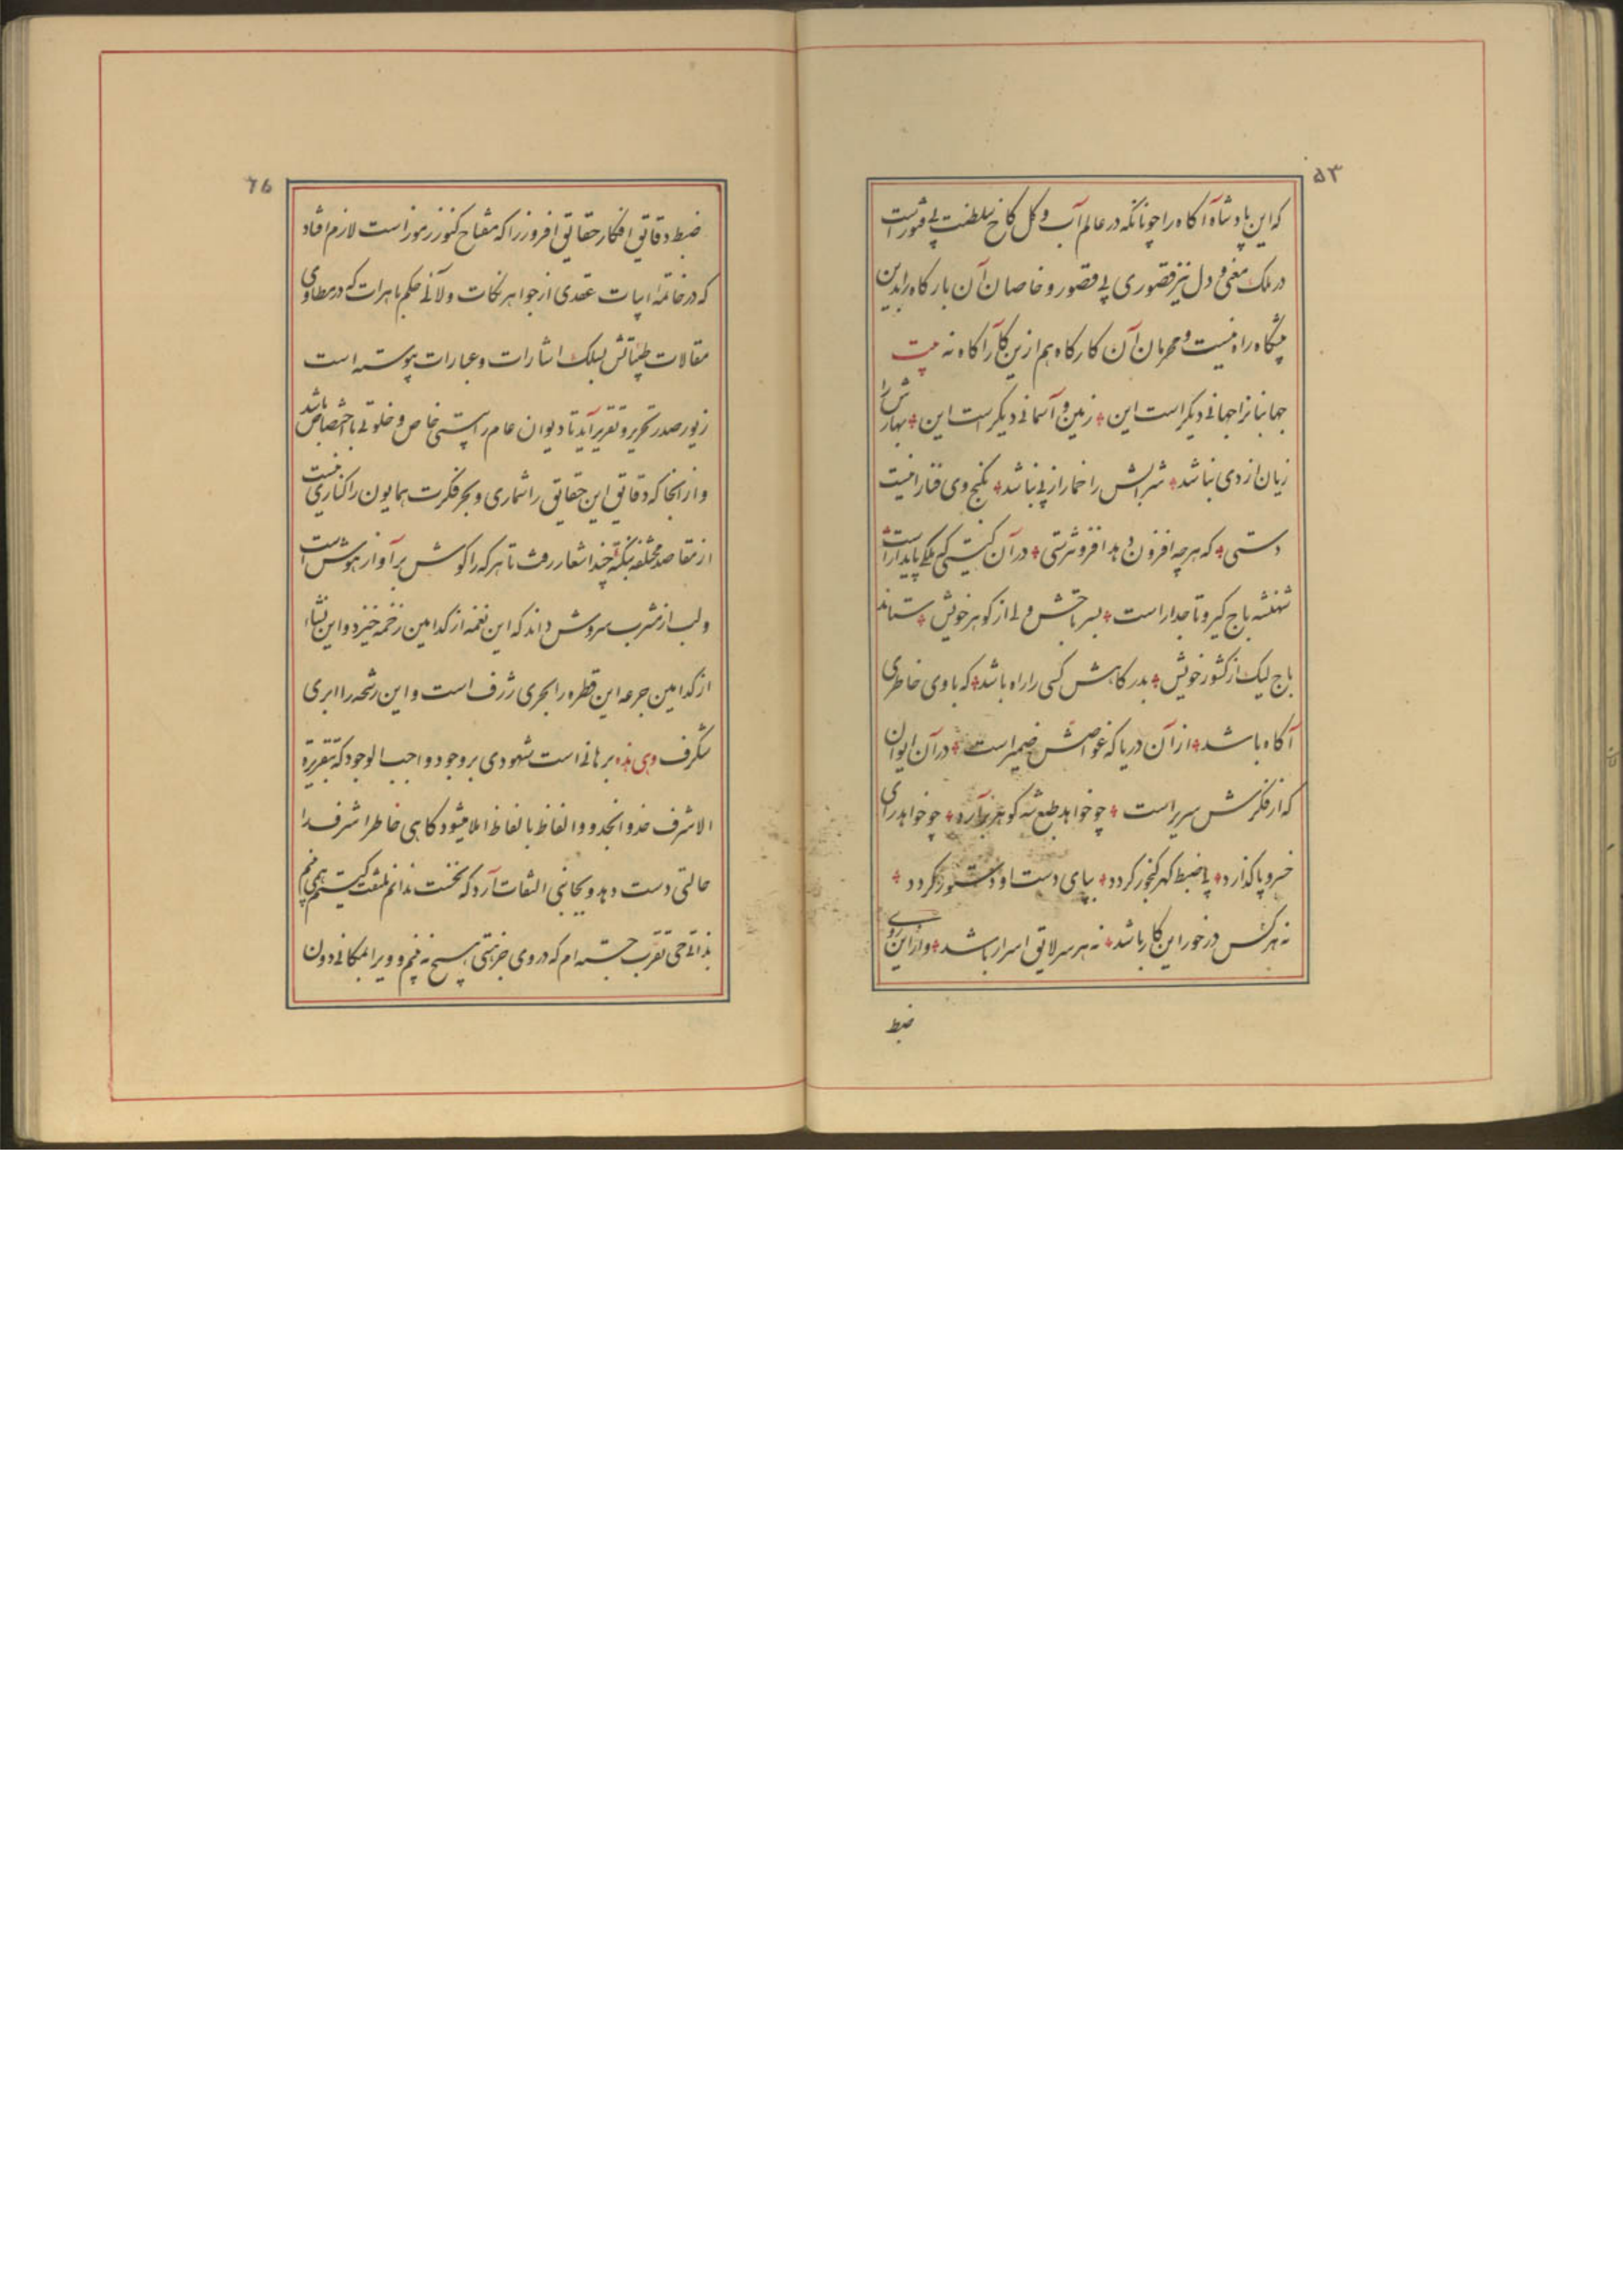 ۵۳
که این پادشاه آگاه را چونانکه در عالم آب و گل کاخ سلطنت بی فتور است
در ملک معنی و دل نیز قصوری بی قصور و خاصان آن بارگاه را بدین
پیشگاه راه نیست و محرمان آن کارگاه هم ازین کار آگاه نه بیت
جهانبانرا جهانی دیگر است این * زمین و آسمانی دیگر است این * بهارش را
زیان از دی نباشد * شرابش را خمار از پی نباشد * بگنج وی فنا را نیست
دستی * که هر چه افزون دهد افزونترستی * در آن گیتی که ملکی پایدار است
شهنشه باج گیر و تاجدار است * بسر تاجش ولی از گوهر خویش * ستاند
باج لیک از کشور خویش * بدرگاهش کسی را راه باشد * که با وی خاطری
آگاه باشد * از آن دریا که غواصش ضمیر است * در آن ایوان
که از فکرش سریر است * چو خواهد طبع شه گوهر برآرد * چو خواهد رای
خسرو پا گذارد * پی ضبط گهر گنجور گردد * بپای دست او دستور گردد *
نه هر کس در خور این کار باشد * نه هر سر لایق اسرار باشد * و از این روی
ضبط
ضبط دقایق افکار حقایق افروز را که مفتاح کنوز رموز است لازم افتاد
که در خاتمه ابیات عقدی از جواهر نکات و لآلی حکم باهرات که در مطاوی
مقالات طیباتش بسلک اشارات و عبارات پیوسته است
زیور صدر تحریر و تقریر آید تا دیوان عام را ستی خاص و خلوتی با اختصاص باشد
و از آنجا که دقایق این حقایق را شماری و بحر فکرت همایون را کناری نیست
از مقاصد مختلفه بنکته چند اشعار رفت تا هر که را گوش بر آواز هوش است
و لب از مشرب سروش داند که این نغمه از کدامین زخمه خیزد و این نشاء
از کدامین جرعه این قطره را بحری ژرف است و این رشحه را ابری
شگرف وهی هذه برهانی است شهودی بر وجود واجب الوجود که بتقریره
الاشرف خذو انجدو و الفاظ بالفاظ املا میشود گاهی خاطر اشرف را
حالتی دست دهد و بجانبی التفات آرد که نخست ندانم ملتفت کیستم همی بینم
بذاتی حی تقرب جسته ام که در وی جز هستی هیچ نه بینم و ویرا بمکانی دون